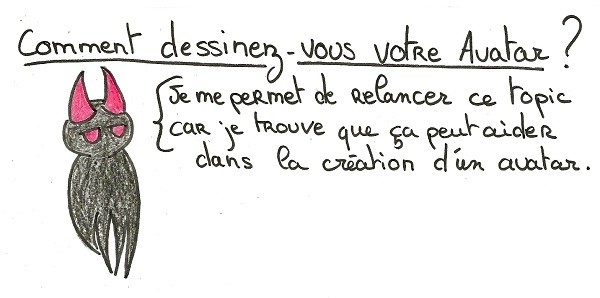 Comment dessinez-vous votre Avatar ?
Je me permet de relancer ce topic
car je trouve que ça peut aider
dans la création d'un avatar.